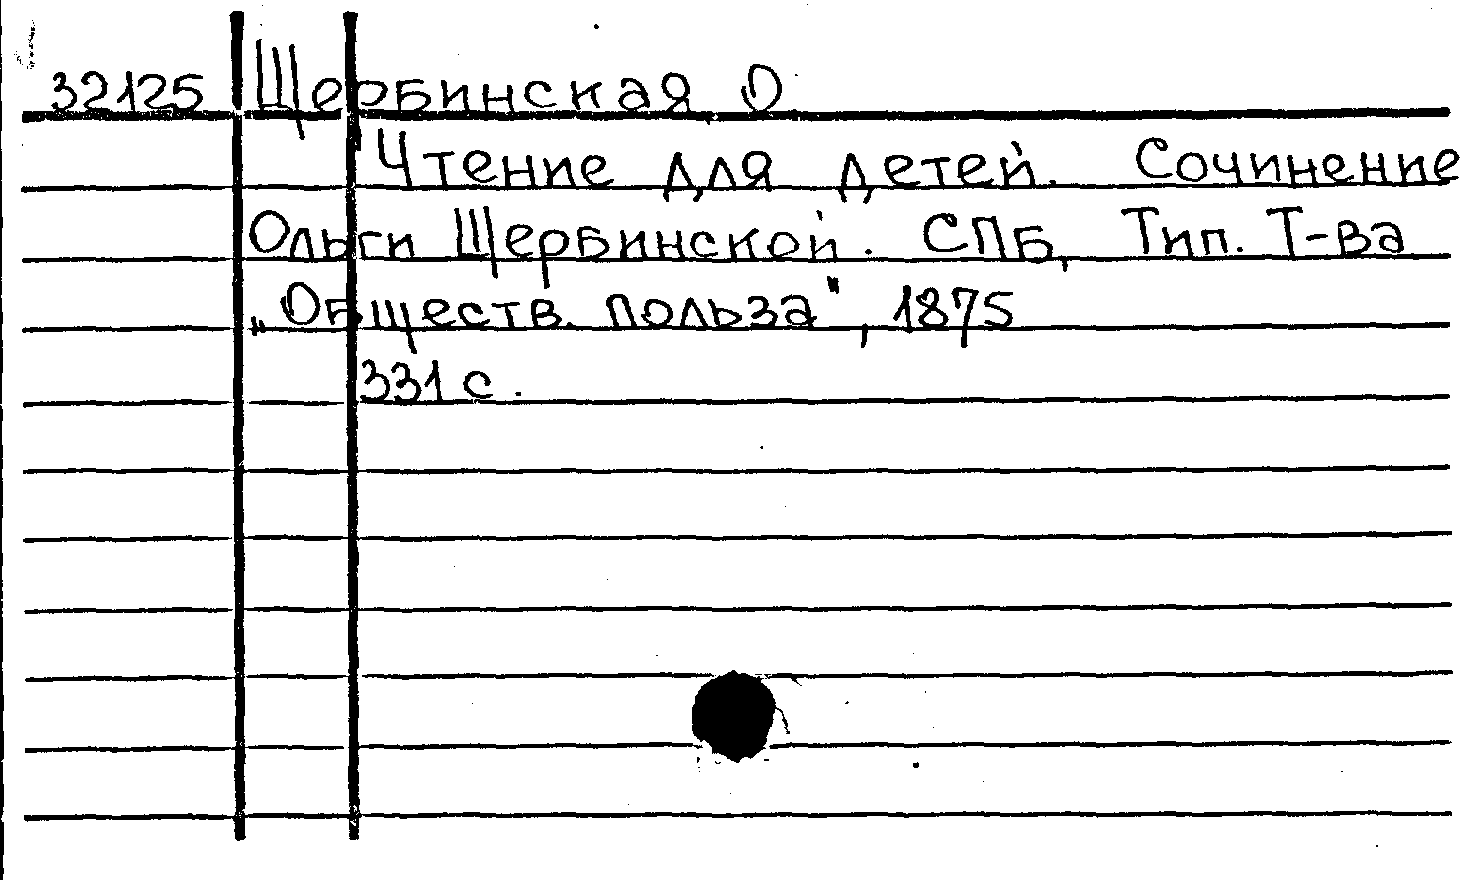 32125 Щербинская О
Чтение для детей. Сочинение
Ольги Щербинской. СПБ, Тип. Т-ва
„Обществ. польза", 1875
331 с.